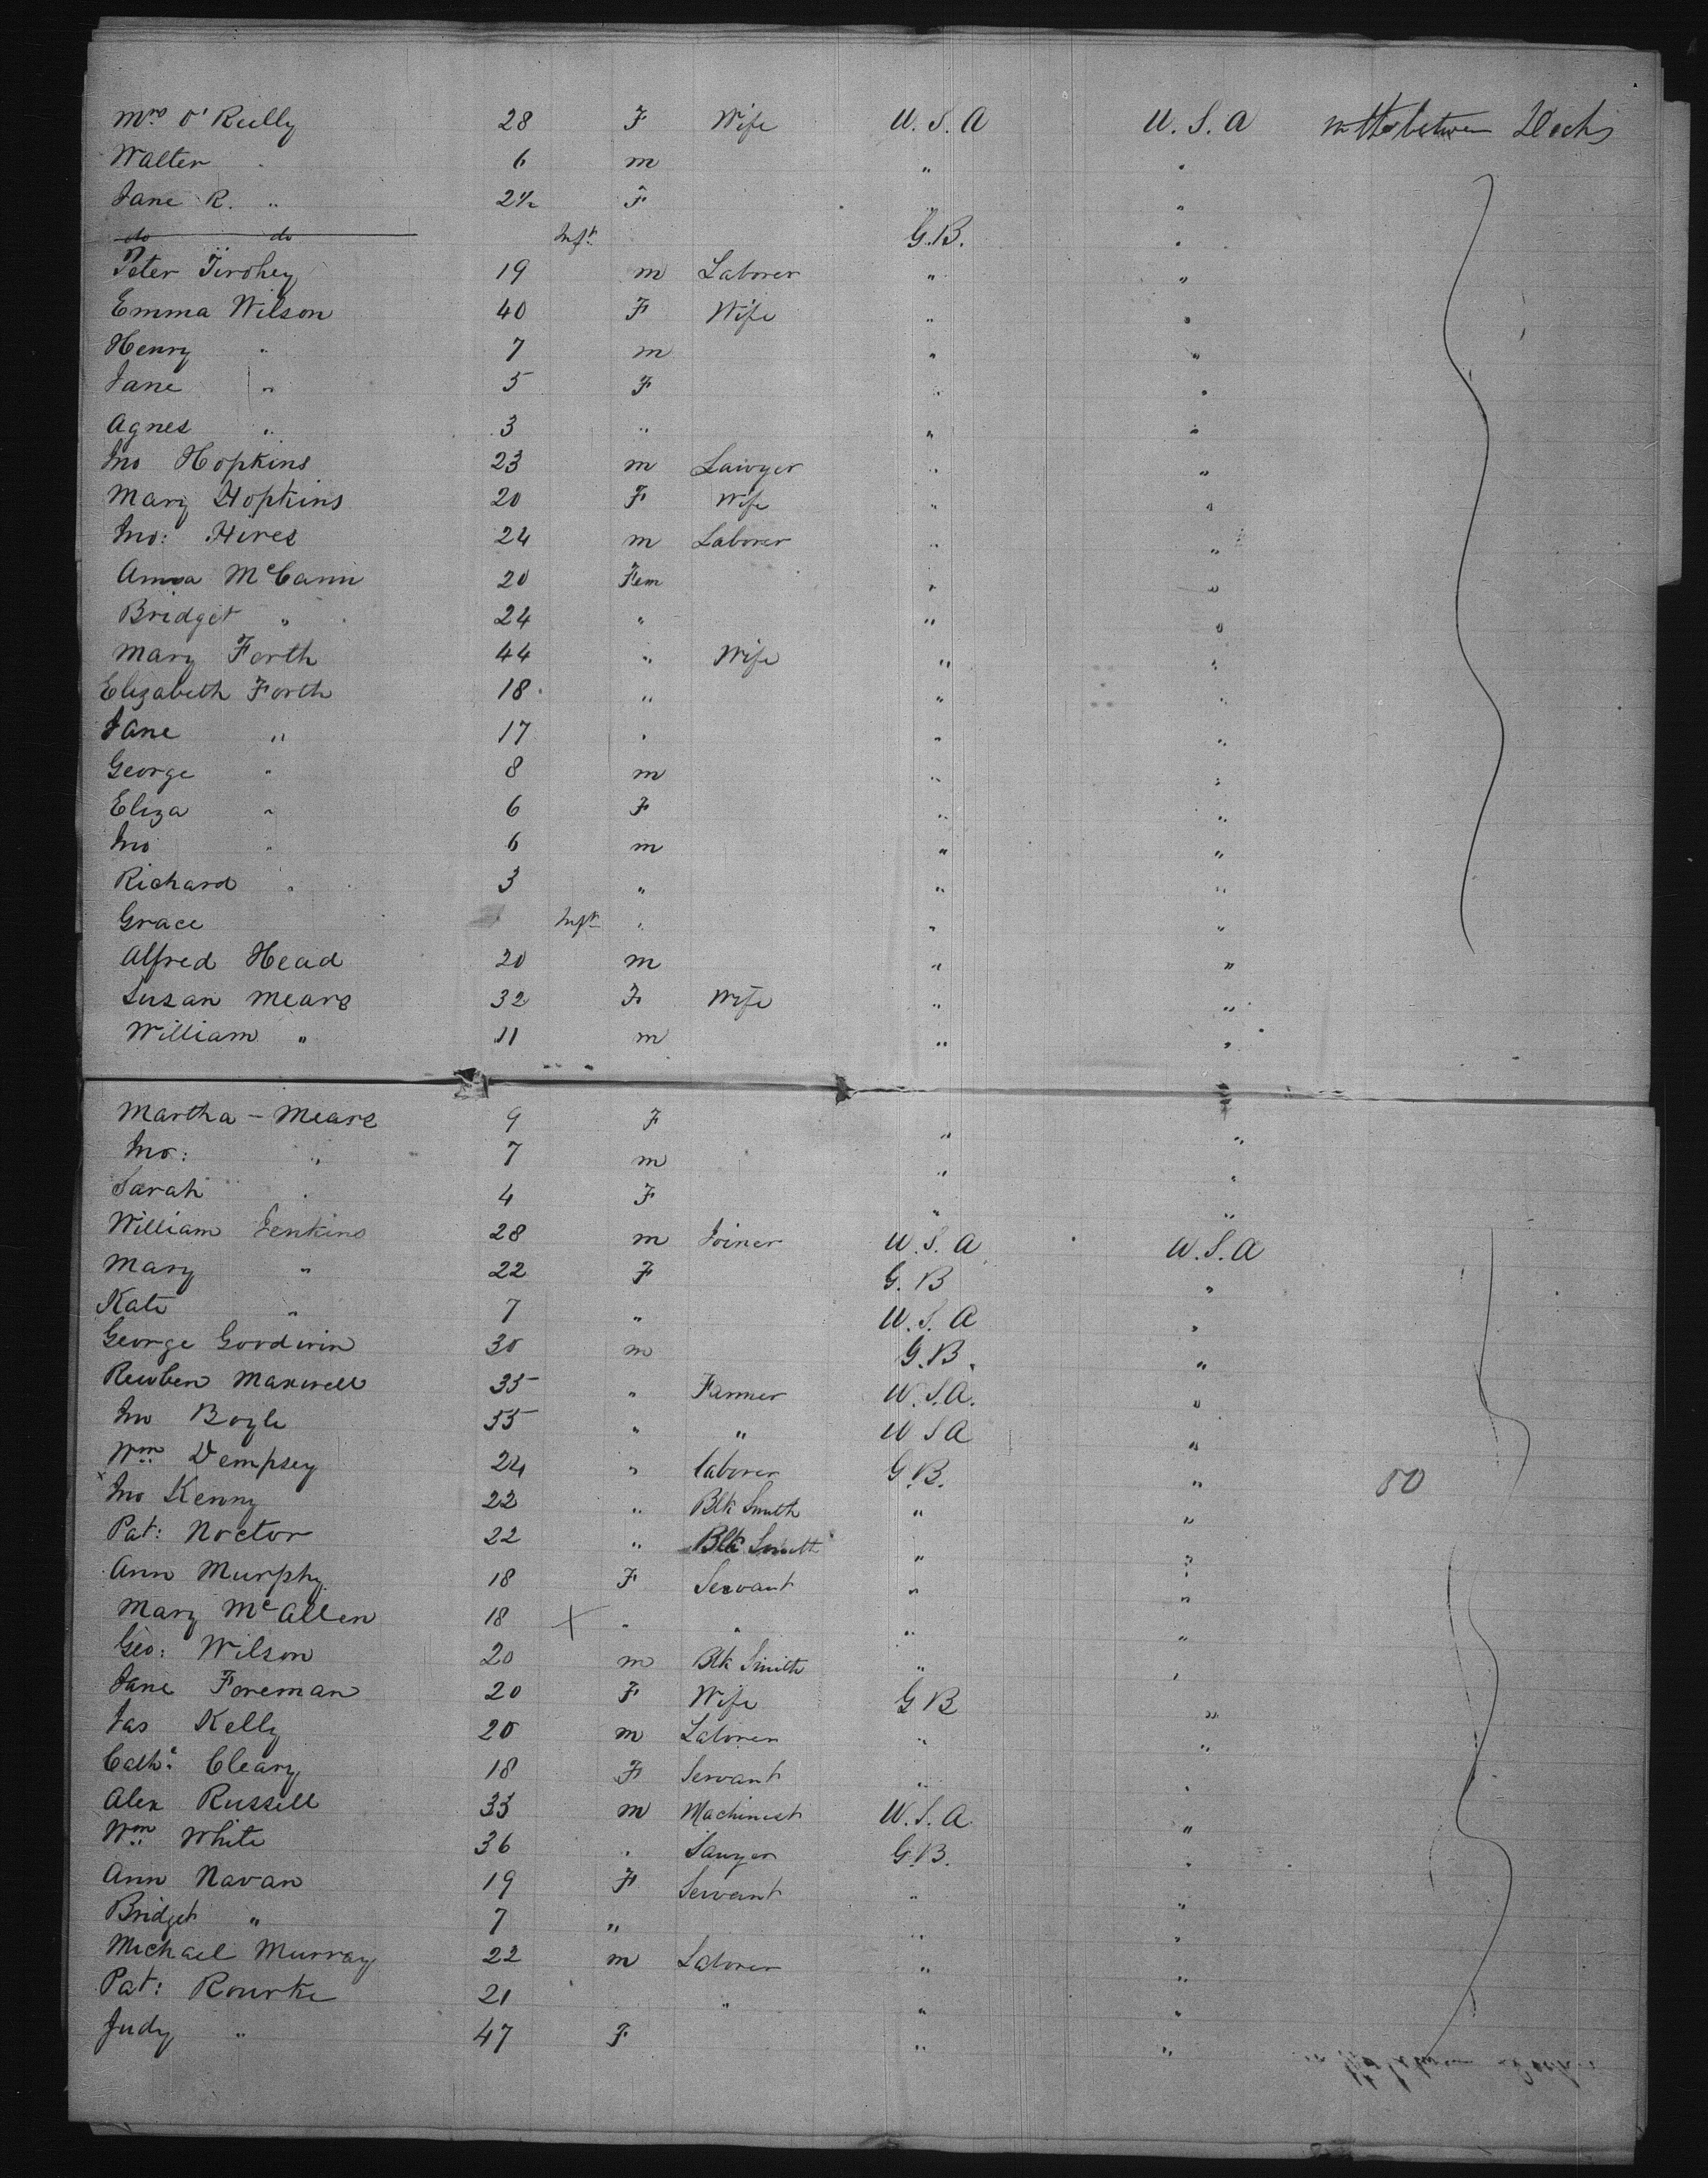 Mrs O'Reilly 28 F Wife U.S.A U.S.A in the between Decks
Walter " 6 m " "
Jane R. " 2½ F " "
do do Inft G.B. "
Peter Tirohey 19 m Laborer " "
Emma Wilson 40 F Wife " "
Henry " 7 m " "
Jane " 5 F " "
Agnes " 3 " " "
Jno Hopkins 23 m Lawyer " "
Mary Hopkins 20 F Wife " "
Jno: Hires 24 m Laborer " "
Anna McCann 20 Fem " "
Bridget " 24 " " "
Mary Forth 44 " Wife " "
Elizabeth Forth 18 " " "
Jane " 17 " " "
George " 8 m " "
Eliza " 6 F " "
Jno " 6 m " "
Richard " 3 " " "
Grace Inft " " "
Alfred Head 20 m " "
Susan Mears 32 F Wife " "
William " 11 m " "
Martha - Mears 9 F " "
Jno: " 7 m " "
Sarah " 4 F " "
William Jenkins 28 m Joiner U.S.A U.S.A
Mary " 22 F G.B "
Kate " 7 " U.S.A "
George Goodwin 30 m G.B. "
Reuben Maxwell 35 " Farmer U.S.A. "
Jno Boyle 55 " " U S A "
Wm Dempsey 24 " laborer G.B. "
x Jno Kenny 22 " Blk Smith " " 50
Pat: Noctor 22 " Blk Smith " "
Ann Murphy 18 F Servant " "
Mary McAllen 18 x " " " "
Geo: Wilson 20 m Blk Smith " "
Jane Foreman 20 F Wife G B "
Jas Kelly 20 m Laborer " "
Cathe Cleary 18 F Servant " "
Alex Russell 33 m Machinest U.S.A "
Wm White 36 " Sawyer G.B. "
Ann Navan 19 F Servant " "
Bridget " 7 " " "
Michael Murray 22 m Laborer " "
Pat: Rourke 21 " " "
Judy " 47 F " "